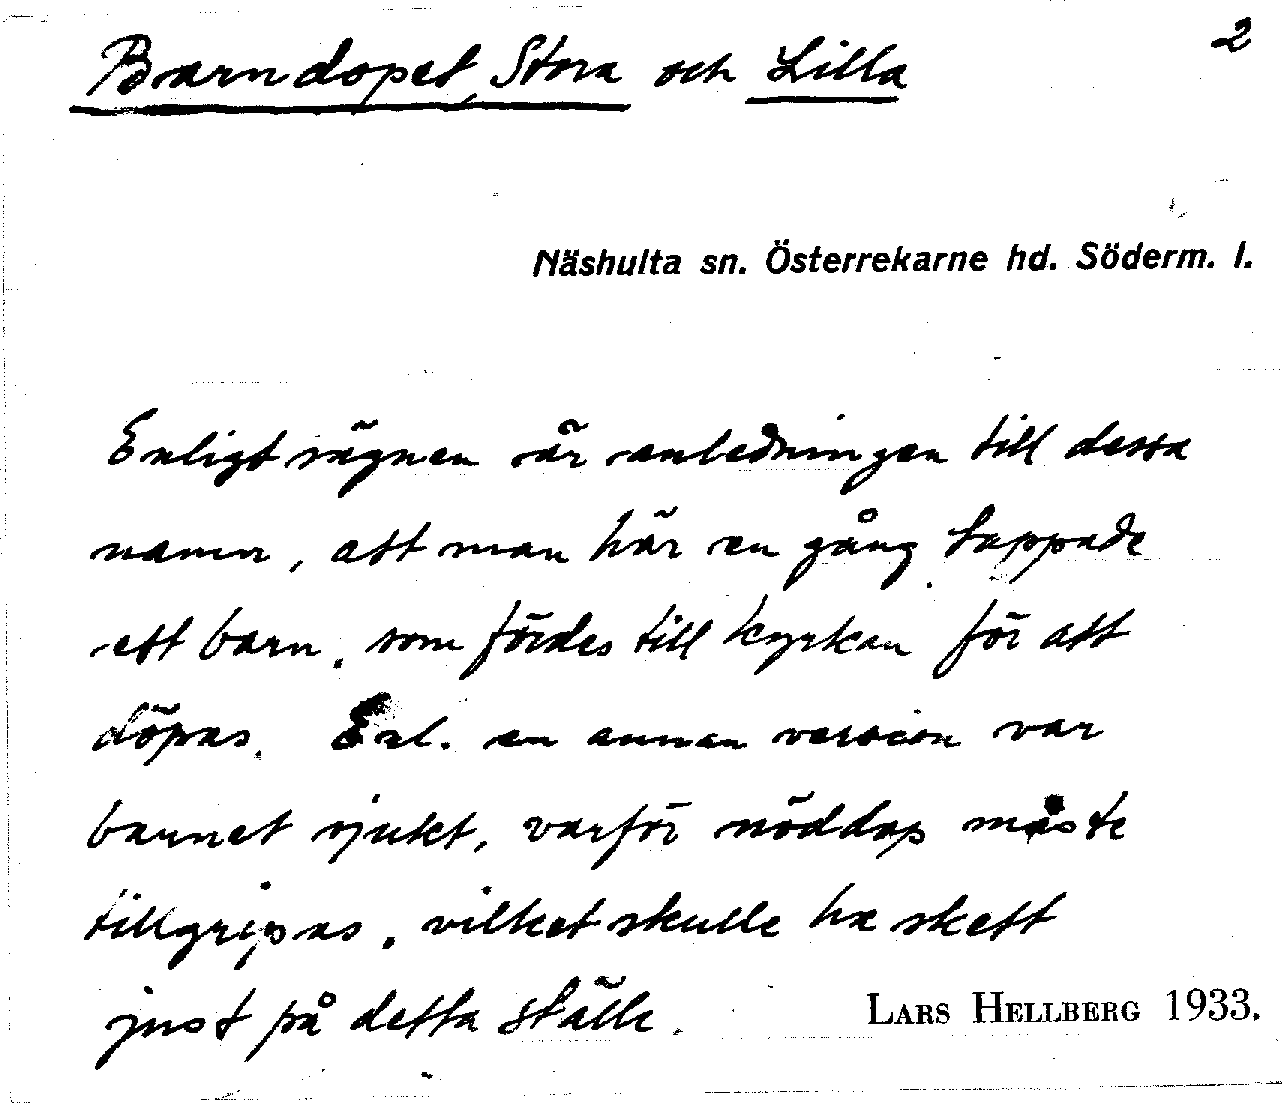 2
Barndopet, Stora och Lilla
Näshulta sn. Österrekarne hd. Söderm. l.
Enligt sägnen är anledningen till dessa
namn, att man här en gång tappade
ett barn, som fördes till kyrkan för att
döpas. Enl. en annan version var
barnet sjukt, varför nöddop måste
tillgripas, vilket skulle ha skett
just på detta ställe.
LARS HELLBERG 1933.